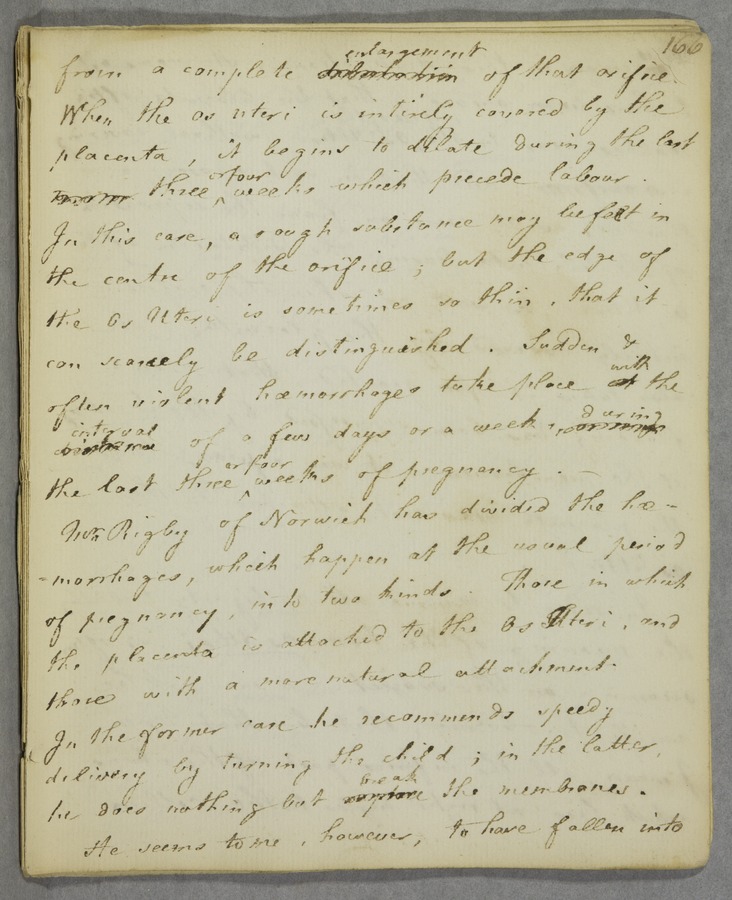 166
enlargement
from a complete of that orifice.
When the os uteri is intirely covered by the
placenta, it begins to dilate during the last
or four
three ^ weeks which precede labour.
In this case, a rough substance may be felt in
the centre of the orifice; but the edge of
the Os Uteri is sometimes so thin, that it
can scarcely be distinguished. Sudden &
with
often violent hæmorrhages take place at the
interval during
of a few days or a week,
or four
the last three ^ weeks of pregnancy. —
Mr. Rigby of Norwich has divided the hæ-
-morrhages, which happen at the usual period
of pregnancy, into two kinds. Those in which
the placenta is attached to the Os Uteri, and
those with a more natural attachment.
In the former case he recommends speedy
delivery by turning the child; in the latter,
break
he does nothing but rupture the membranes.
He seems to me, however, to have fallen into